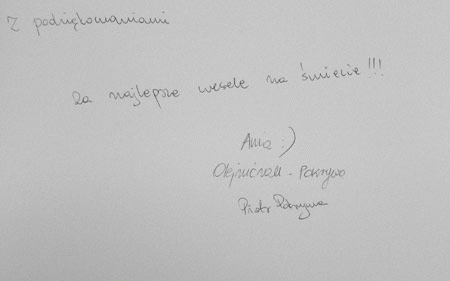 Z podziękowaniami
za najlepsze wesele na świecie!!!
Ania :)
Olejniczak - Pokrywa
Piotr Pokrywa